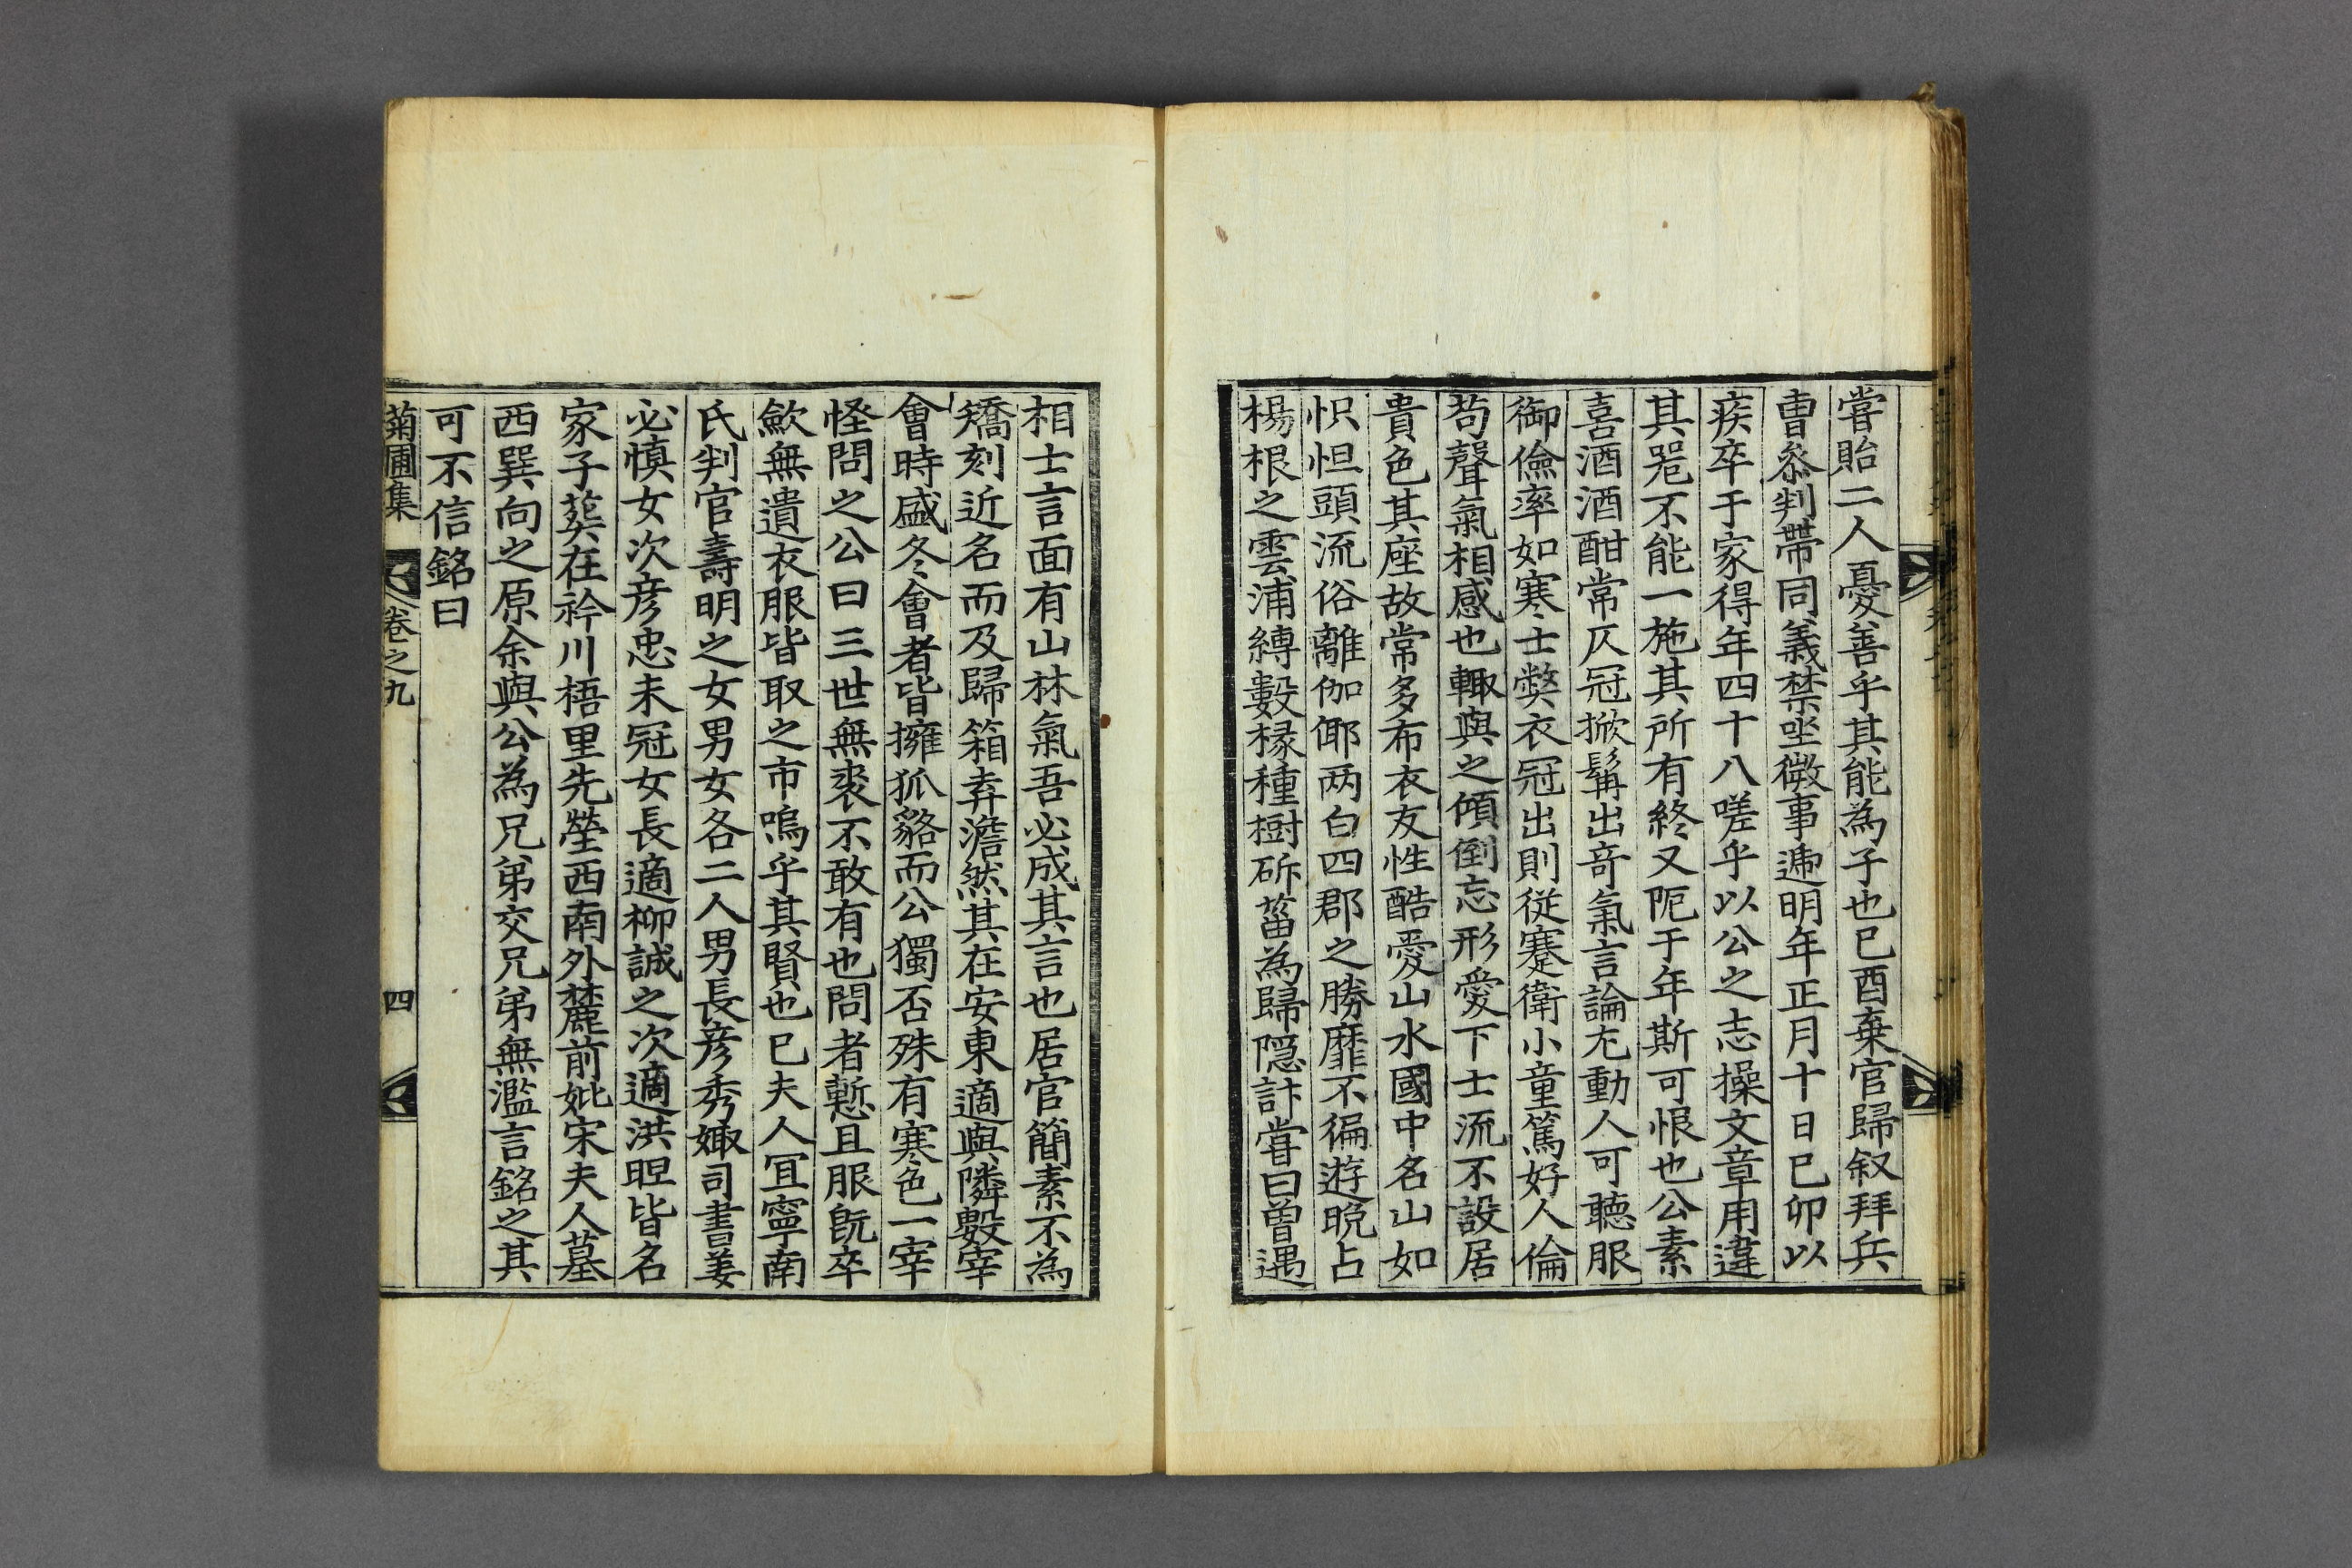 嘗貽二人憂善乎其能為子也已酉棄官歸叙拜兵
曹叅判帶同義禁坐微事遞明年正月十日已卯以
疾卒于家得年四十八嗟乎以公之志操文章用違
其器不能一施其所有終又阨于年斯可恨也公素
喜酒酒酣常仄冠掀髯出竒氣言論尤動人可聽服
御儉率如寒士弊衣冠出則従蹇衛小童篤好人倫
苟聲氣相感也輙與之傾倒忘形愛下士流不設居
貴色其座故常多布衣友性酷愛山水國中名山如
怾怛頭流俗離伽倻两白四郡之勝靡不徧遊晩占
楊根之雲浦縛數椽種樹斫菑為歸隠計甞曰曽遇
相士言面有山林氣吾必成其言也居官簡素不為
矯刻近名而及歸箱弆澹然其在安東適與隣數宰
會時盛冬會者皆擁狐貉而公獨否殊有寒色一宰
怪問之公曰三世無裘不敢有也問者慙且服旣卒
歛無遺衣服皆取之市嗚乎其賢也已夫人冝寧南
氏判官壽明之女男女各二人男長彦秀娵司書姜
必慎女次彦忠未冠女長適柳誠之次適洪昍皆名
家子葬在衿川梧里先塋西南外麓前妣宋夫人墓
西巽向之原余與公為兄弟交兄弟無濫言銘之其
可不信銘曰
菊圃集 卷之九 四